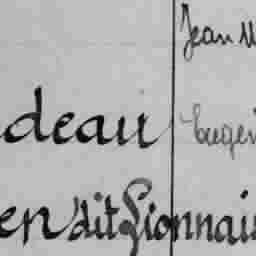 Jean
deau Eugen
en dit Lionnais